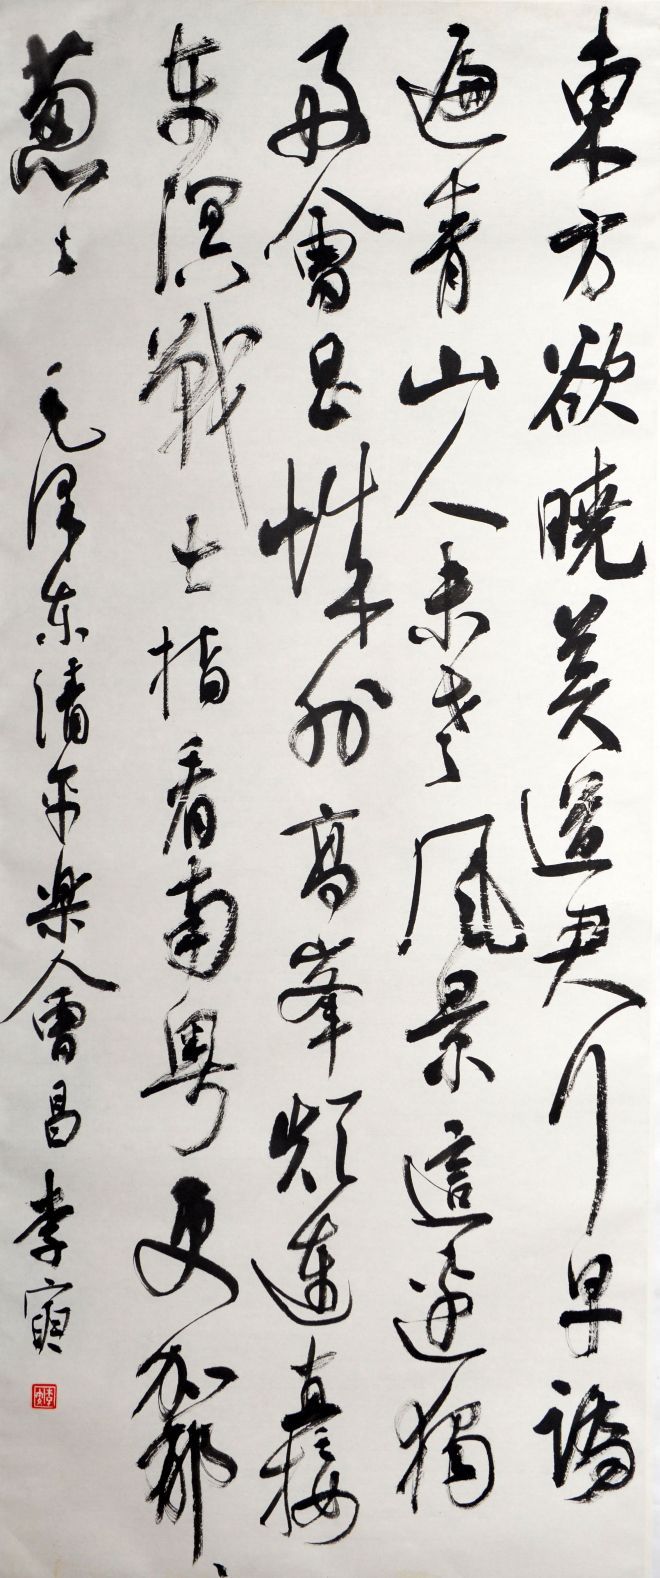 東方欲曉莫道君行早踏
遍青山人未老風景這邊獨
好會昌城外高峯顛連直接
东溟戰士指看南粤更加郁々
蔥々 毛泽东清平楽會昌 李寅